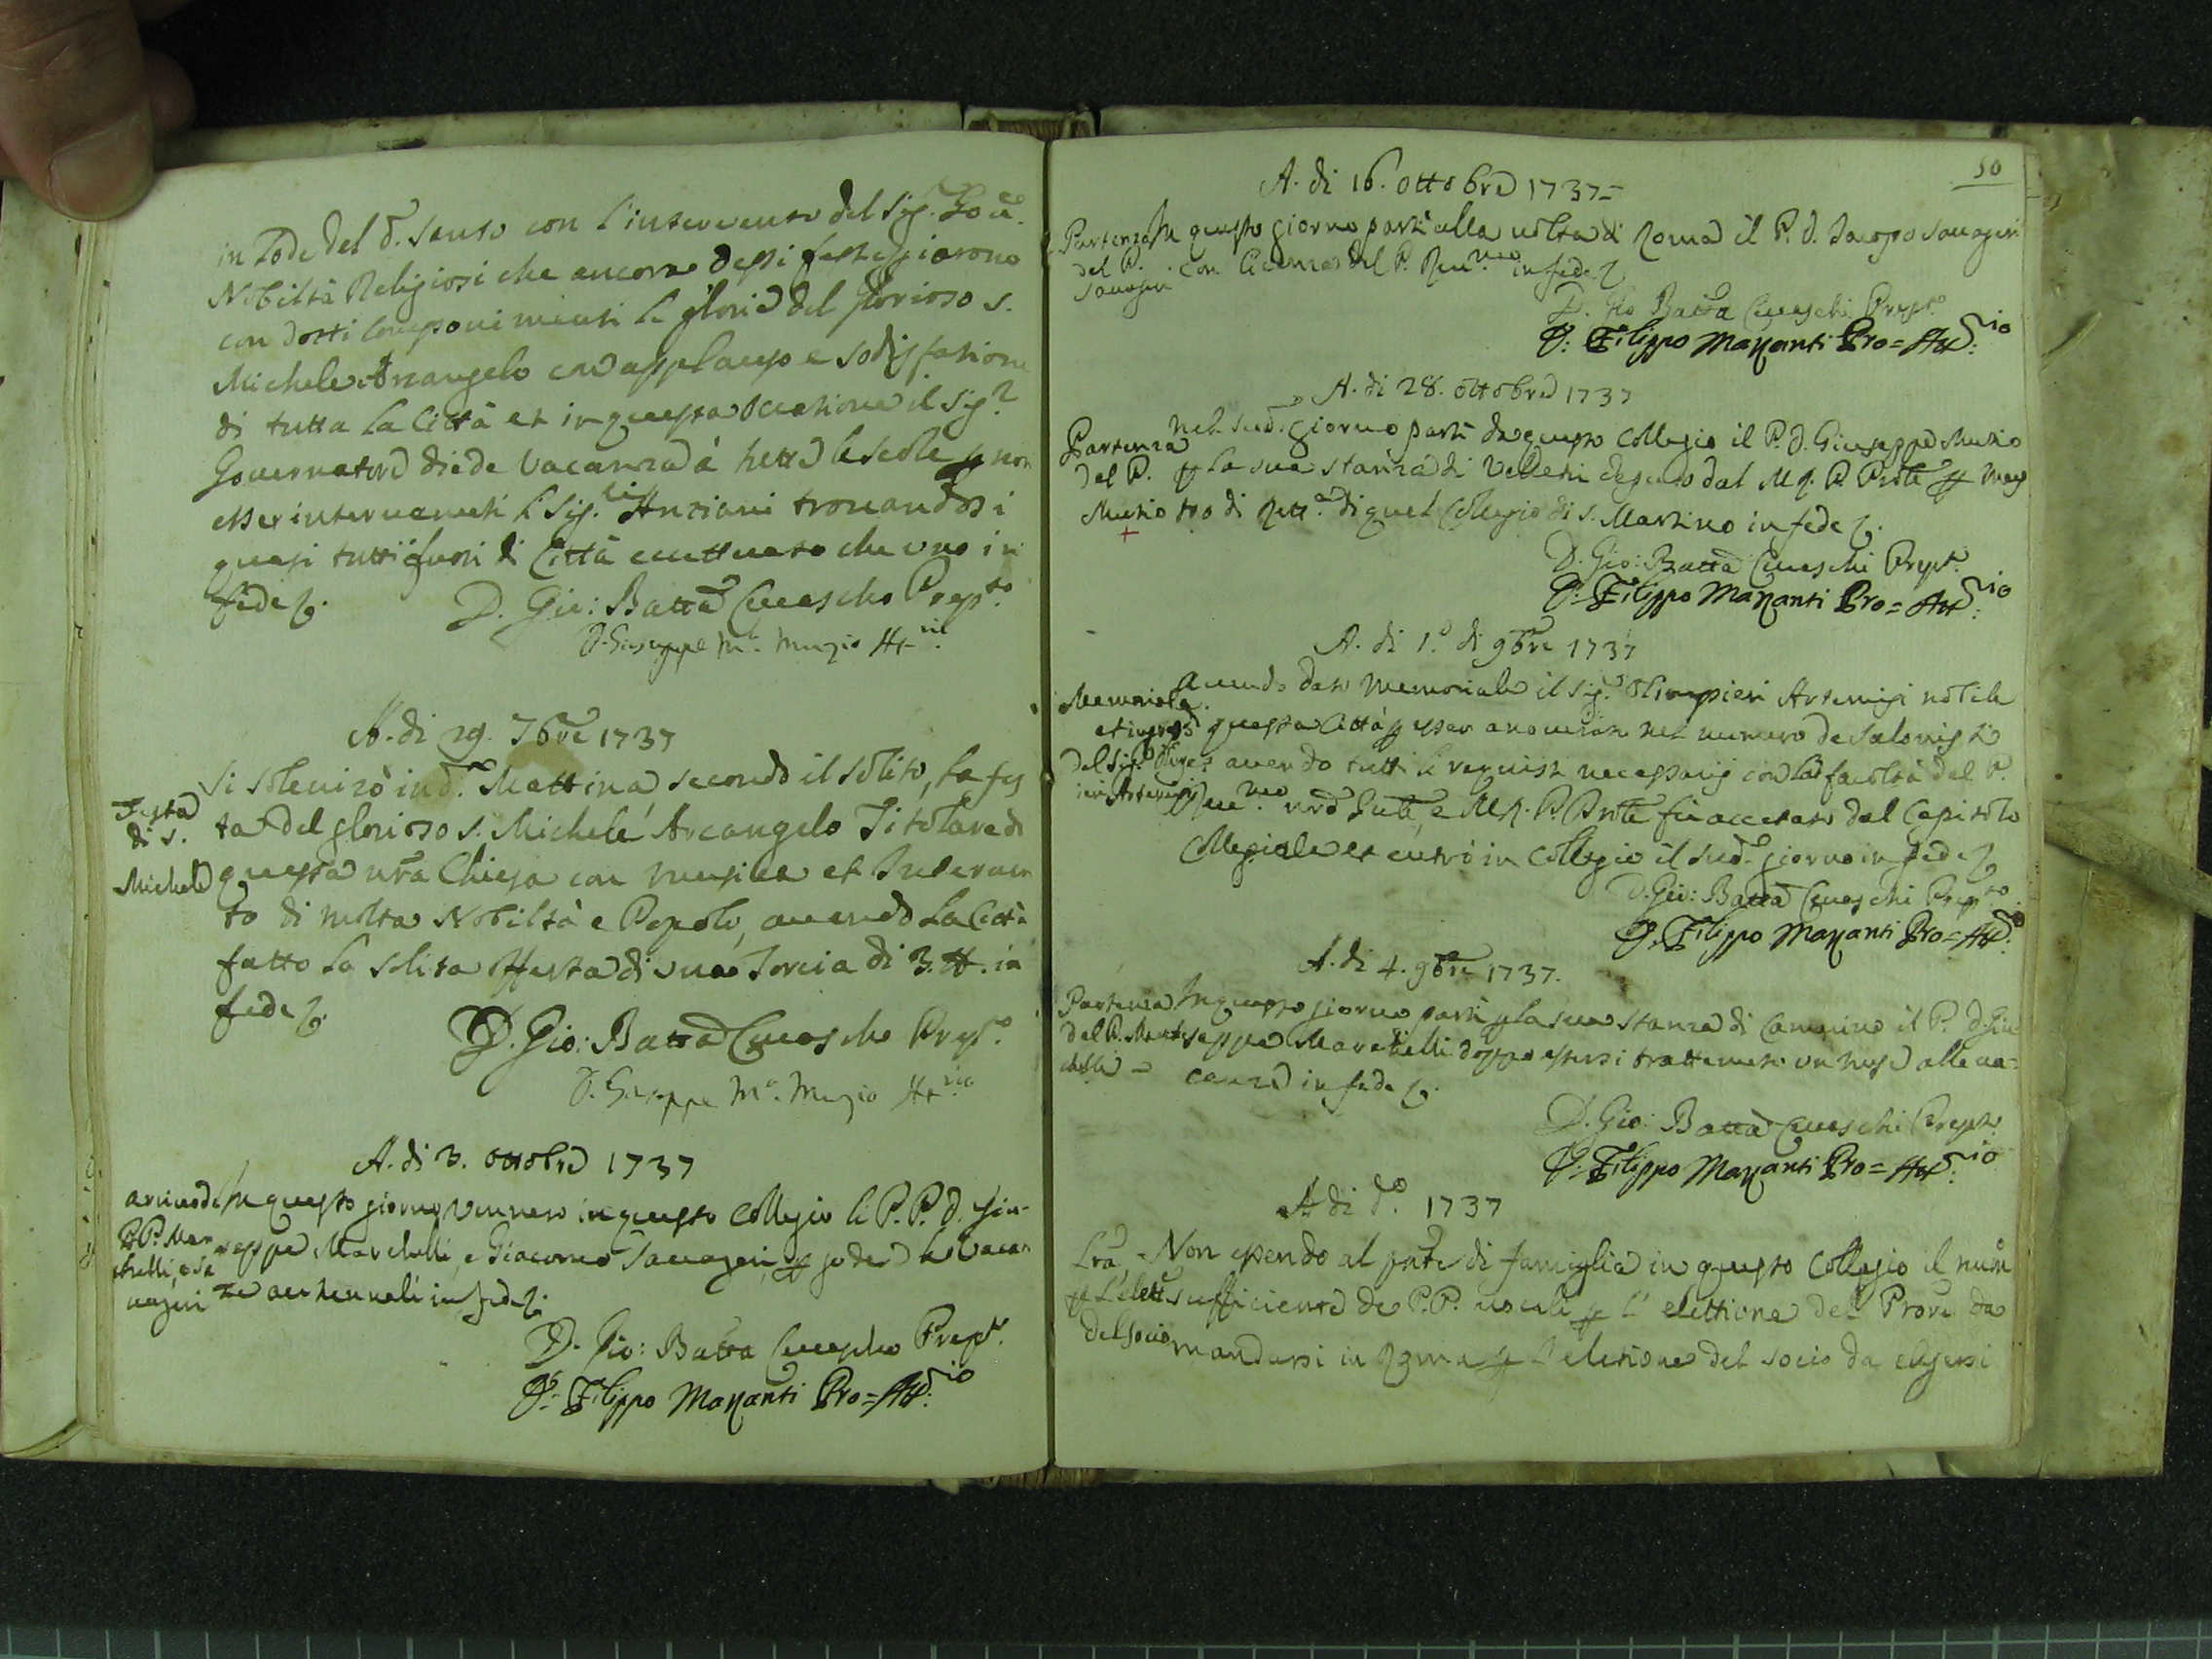 in lode del d.º Santo con l'intervento del Sig.
Nobiltà Religiosi che ancora dessi festeggiarono
con dotti componimenti le glorie del glorioso S.
Michele Arcangelo con applauso e sodisfazione
di tutta la Città et in questa occasione il Sig.r
Governatore diede vacanza à tutte le scole p non
esser intervenuti li Sig.ri Anziani trovandosi
quasi tutti fuori di Città eccettuato che uno in
fede &.
D. Gio: Batta Cevaschi Prep.to
D. Giuseppe M.a Muzio Att.rio
A. di 29. 7bre 1737
Festa
di S.
Michele
Si solenizò in d.a Mattina, secondo il solito, la fes
ta del glorioso S. Michele Arcangelo Titolare di
questa nrã Chiesa con musica et Interven
to di molta Nobiltà e Popolo, avendo la Città
fatto la solita offerta di una Torcia di 3. ℔. in
fede &.
D. Gio: Batta Cevascho Prep.to
D. Giuseppe M.a Muzio Att.rio
A. di 3. ottobre 1737
arrivo de
P.P. Mar
chelli, e Sa
vageri
In questo giorno vennero in questo Collegio li P.P. D. Giu-
seppe Marchelli, e Giacomo Savageri, p godere le vacan
ze autunnali in fede &.
D. Gio: Batta Cevascho Prep.to
D. Filippo Mazzanti Pro=Att.rio
50
A. di 16. ottobre 1737
Partenza
del P.
Savageri
In questo giorno partì alla volta di Roma il P. D. Jacopo Savageri
con licenza del P. Rev.mo in fede &
D. Gio Batta Cevaschi Prep.to
D. Filippo Mazzanti Pro=Att.rio
A. di 28. ottobre 1737
Partenza
del P.
Mutio
+
Nel sud.º giorno partì da questo Collegio il P. D. Giuseppe Mutio
p la sua stanza di Velletri dal M. R. P. Prõle p Maes
tro di Rett.a di quel Collegio di S. Martino in fede &.
D. Gio: Batta Cevaschi Prep.to
D. Filippo Mazzanti Pro=Att.rio
A. di 1.º di 9bre 1737
Memoriale
et ingresso
del Sig.r Olimpie
ri Artemigi
avendo dato memoriale il Sig.r Olimpieri Artemigi nobile
questa Città p esser anoverato nel numero de
avendo tutti li requisiti necessarij con la facoltà del P.
Rev.mo nrõ Gñle, e M. R. P. Prõle fù accettato dal Capitolo
Collegiale et entrò in Collegio il sud.º giorno in fede &
D. Gio: Batta Cevaschi Prep.to
D. Filippo Mazzanti Pro=Att.rio
A. di 4. 9bre 1737.
Partenza
del P. Mar
chelli
In questo giorno partì p la sua stanza di Camerino il P. D. Giu
seppe Marchelli doppo essersi trattenuto un mese alle va=
canze in fede &.
D. Gio: Batta Cevaschi Prep.to
D. Filippo Mazzanti Pro=Att.rio
A di d.º 1737
Lrã
p l'elett.e
del socio
Non essendo al pñte di famiglia in questo Collegio il num.º
sufficiente de P.P. vocali p l'elettione del Prorè da
mandarsi in Roma p l'eletione del socio da elegersi